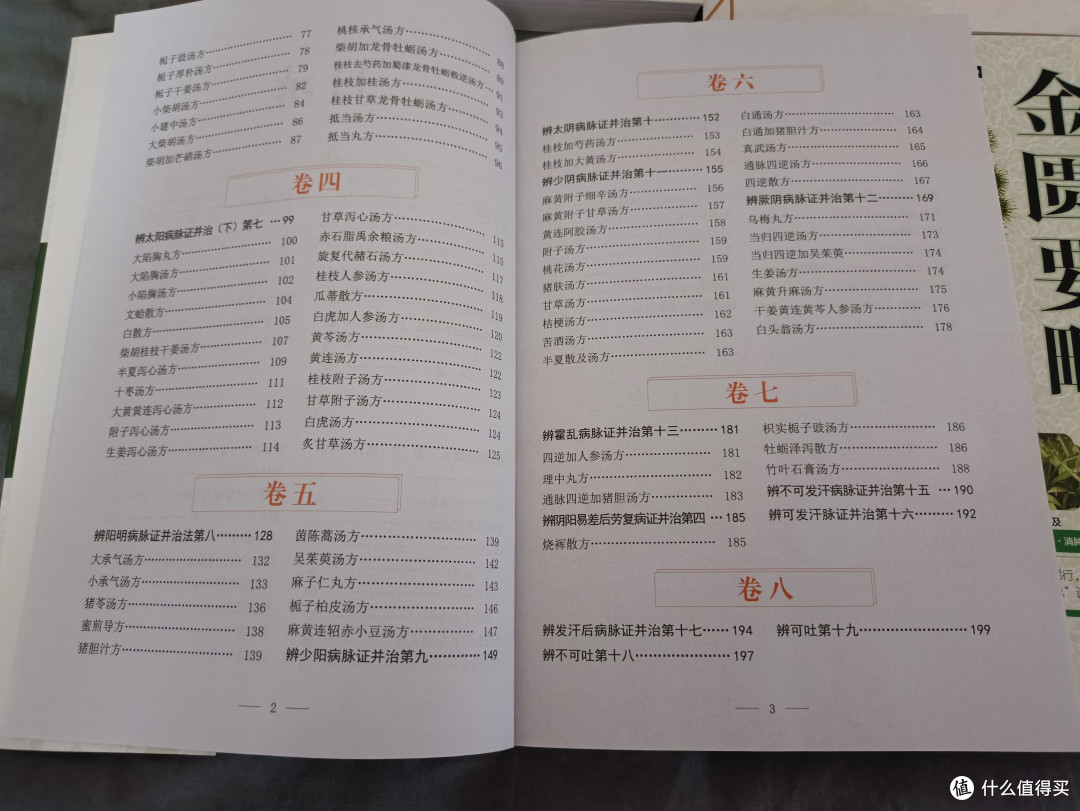 栀子豉汤方 77
栀子厚朴汤方 78
栀子干姜汤方 79
小柴胡汤方 82
小建中汤方 84
大柴胡汤方 86
柴胡加芒硝汤方 87
桃核承气汤方 88
柴胡加龙骨牡蛎汤方 89
桂枝去芍药加蜀漆龙骨牡蛎救逆汤方 91
桂枝加桂汤方 93
桂枝甘草龙骨牡蛎汤方 94
抵当汤方 95
抵当丸方 96
卷四
辨太阳病脉证并治（下）第七 …99
大陷胸丸方 100
大陷胸汤方 101
小陷胸汤方 102
文蛤散方 104
白散方 105
柴胡桂枝干姜汤方 107
半夏泻心汤方 109
十枣汤方 111
大黄黄连泻心汤方 112
附子泻心汤方 113
生姜泻心汤方 114
甘草泻心汤方 115
赤石脂禹余粮汤方 115
旋复代赭石汤方 117
桂枝人参汤方 118
瓜蒂散方 119
白虎加人参汤方 120
黄芩汤方 122
黄连汤方 122
桂枝附子汤方 123
甘草附子汤方 124
白虎汤方 124
炙甘草汤方 125
卷五
辨阳明病脉证并治法第八 128
大承气汤方 132
小承气汤方 133
猪苓汤方 136
蜜煎导方 138
猪胆汁方 139
茵陈蒿汤方 139
吴茱萸汤方 142
麻子仁丸方 143
栀子柏皮汤方 146
麻黄连轺赤小豆汤方 147
辨少阳病脉证并治第九 149
2
卷六
辨太阴病脉证并治第十 152
桂枝加芍药汤方 153
桂枝加大黄汤方 154
辨少阴病脉证并治第十一 155
麻黄附子细辛汤方 156
麻黄附子甘草汤方 157
黄连阿胶汤方 158
附子汤方 159
桃花汤方 159
猪肤汤方 161
甘草汤方 161
桔梗汤方 162
苦酒汤方 163
半夏散及汤方 163
白通汤方 163
白通加猪胆汁方 164
真武汤方 165
通脉四逆汤方 166
四逆散方 167
辨厥阴病脉证并治第十二 169
乌梅丸方 171
当归四逆汤方 173
当归四逆加吴茱萸 174
生姜汤方 174
麻黄升麻汤方 175
干姜黄连黄芩人参汤方 176
白头翁汤方 178
卷七
辨霍乱病脉证并治第十三 181
四逆加人参汤方 181
理中丸方 182
通脉四逆加猪胆汤方 183
辨阴阳易差后劳复病证并治第四 …185
烧裈散方 185
枳实栀子豉汤方 186
牡蛎泽泻散方 186
竹叶石膏汤方 188
辨不可发汗病脉证并治第十五 …190
辨可发汗脉证并治第十六 192
卷八
辨发汗后病脉证并治第十七 194
辨不可吐第十八 197
辨可吐第十九 199
3
金匮要略
值 什么值得买